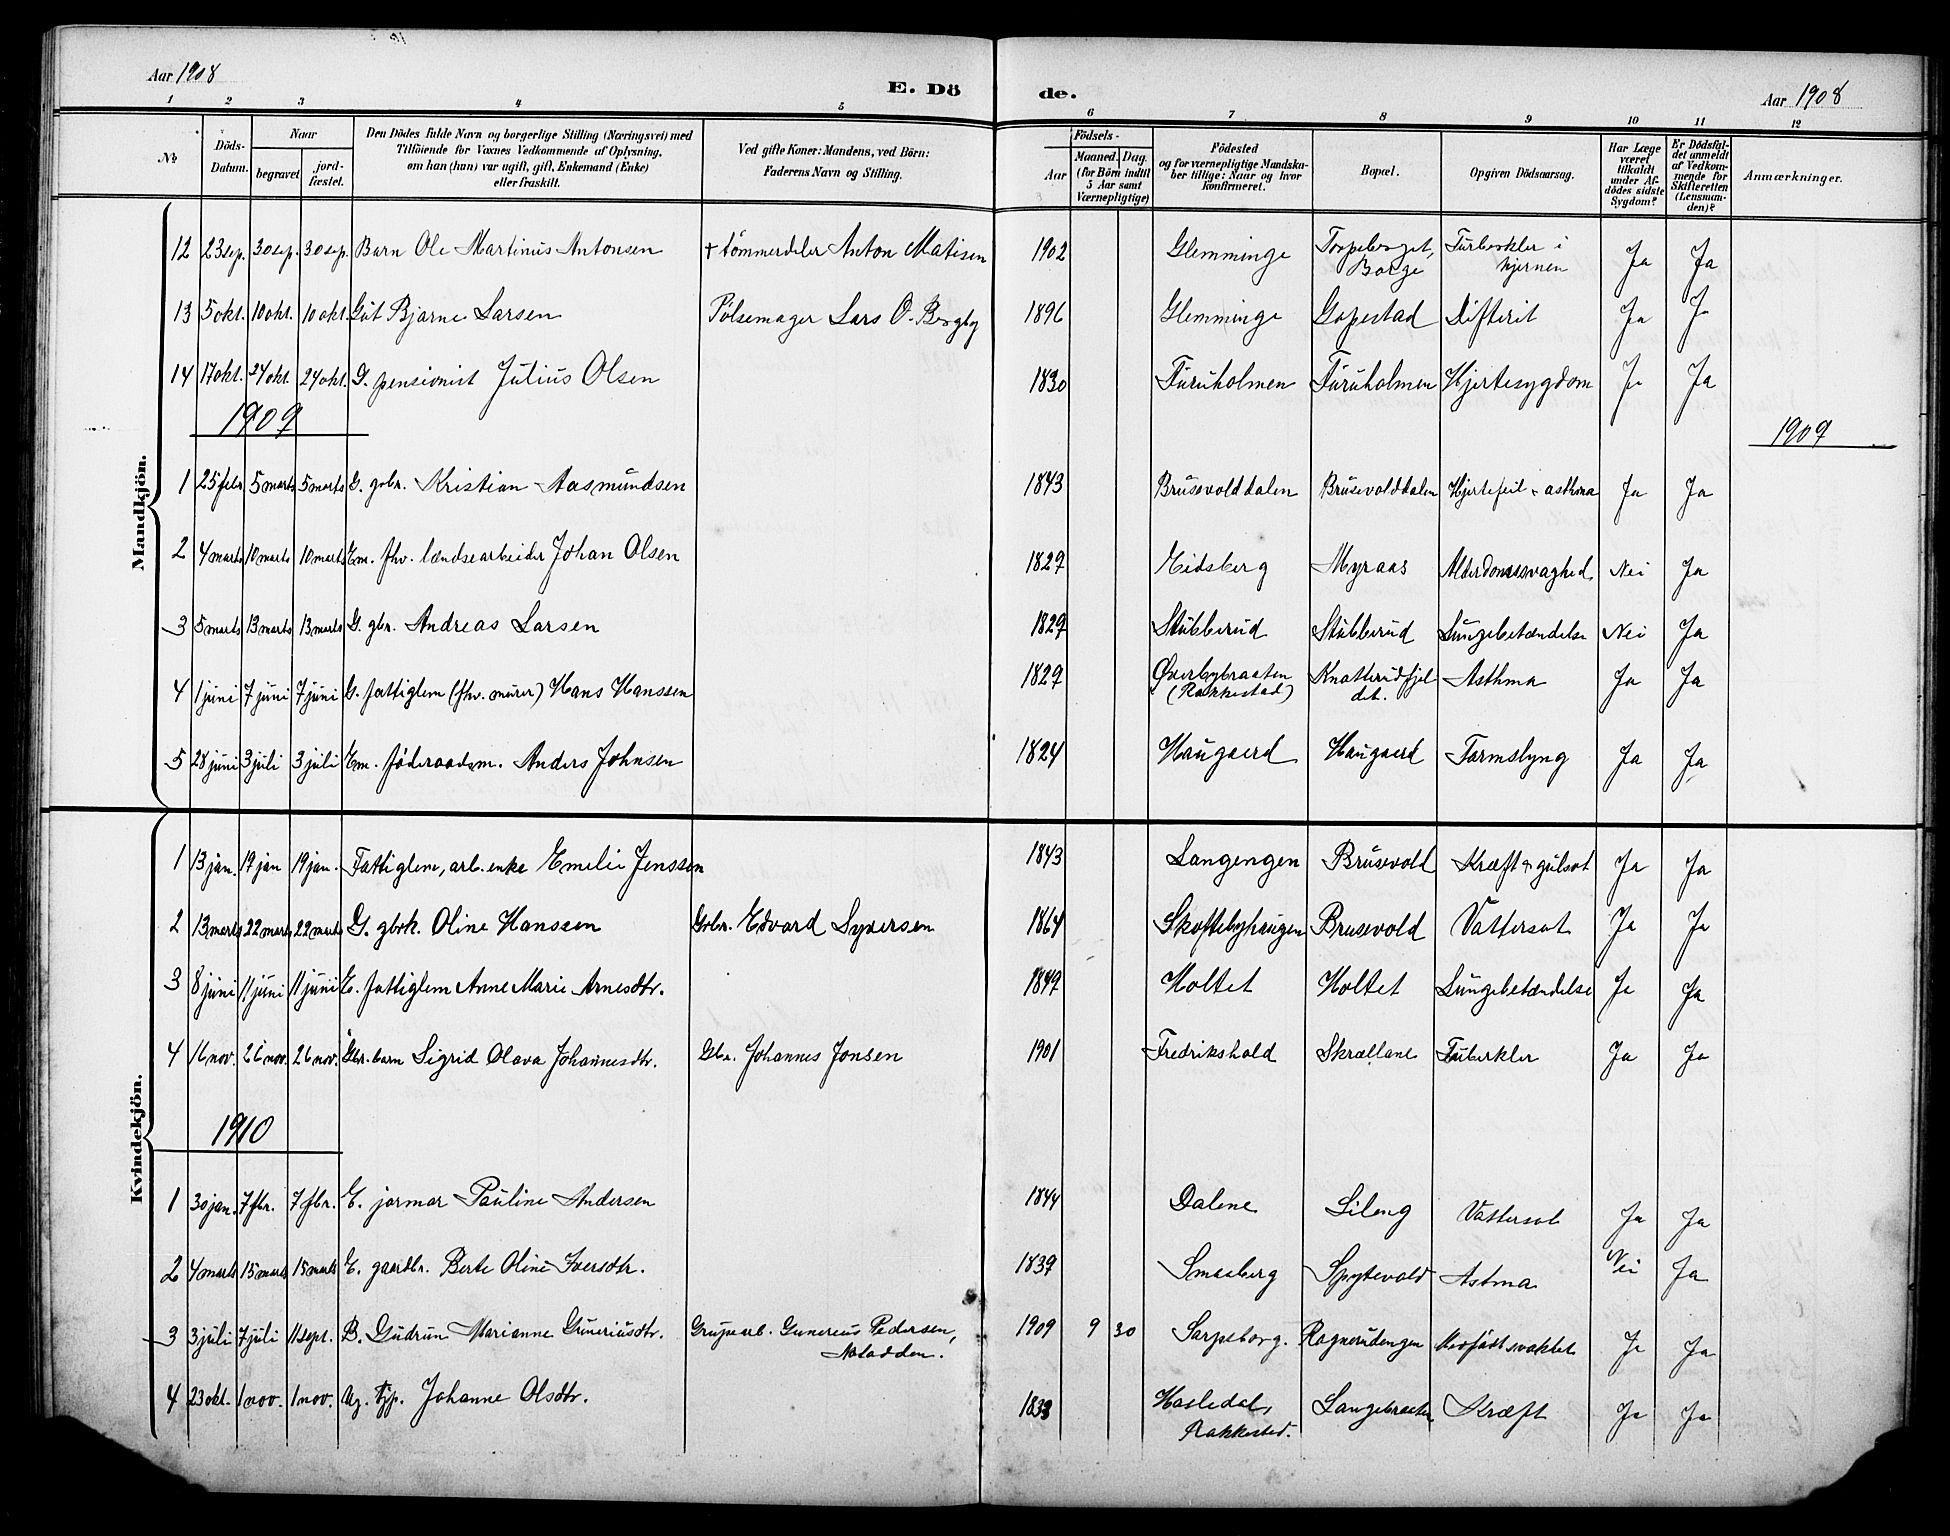 Aar 1908
E. Dö de.
Aar 1908
1 2 3 4 5 6 7 8 9 10 11 12
No
Döds-Datum.
Naar
begravet
jord-fæstet.
Den Dödes fulde Navn og borgerlige Stilling (Næringsvei) med
Tilföiende for Voxnes Vedkommende af Oplysning,
om han (hun) var ugift, gift, Enkemand (Enke)
eller fraskilt.
Ved gifte Koner: Mandens, ved Börn:
Faderens Navn og Stilling.
Födsels-
Aar
Maaned. Dag.
(for Börn indtil
5 Aar samt
Værnepligtige)
Födested
og for værnepligtige Mandska-
ber tillige: Naar og hvor
konfirmeret.
Bopæl.
Opgiven Dödsaarsag.
Har Læge
været
tilkaldt
under Af-
dödes sidste
Sygdom?
Er Dödsfal-
det anmeldt
af Vedkom-
mende for
Skifteretten
(Lensman-
den)?
Anmærkninger.
Mandkjön.
12 23 sep. 30 sep. 30 sep. Barn Ole Martinus Antonsen + tömmerdeler Anton Matisen 1902 Glemminge Torpeberget, Borge Turberkler i hjernen Ja Ja
13 5 okt. 10 okt. 10 okt. Gut Bjarne Larsen Pölsemager Lars O. Bergby 1896 Glemminge Gopestad Difterit Ja Ja
14 17 okt. 24 okt. 24 okt. G. pensionist Julius Olsen 1830 Furuholmen Furuholmen Hjertesygdom Ja Ja
1909
1909
1 25 febr 5 marts 5 marts G. gbr. Kristian Aasmundsen 1843 Brusevolddalen Brusevolddalen Hjertefeil & asthma Ja Ja
2 4 marts 10 marts 10 marts Em. fhv. lændsearbeider Johan Olsen 1827 Eidsberg Myraas Alderdomssvaghed Nei Ja
3 5 marts 13 marts 13 marts G. gbr. Andreas Larsen 1829 Stubberud Stubberud Lungebetændelse Nei Ja
4 1 juni 7 juni 7 juni G. fattiglem (fhv. murer) Hans Hanssen 1827 Øverbybraaten (Rakkestad) Knatterudfjeldet. Asthma Ja Ja
5 28 juni 3 juli 3 juli Em. föderaadsm. Anders Johnsen 1824 Haugaerd Haugaerd Tarmslyng Ja Ja
Kvindekjön.
1 13 jan. 19 jan 19 jan. Fattiglem, arb. enke Emelie Jenssen 1843 Langengen Brusevold Kræft & gulsot Ja Ja
2 13 marts 22 marts 22 marts G. gbrk. Oline Hanssen Gbr. Edvard Syversen 1864 Skoftebyhaugen Brusevold Vattersot Ja Ja
3 8 juni 11 juni 11 juni E. fattiglem Anne Marie Arnesdtr. 1849 Holtet Holtet Lungebetændelse Ja Ja
4 16 nov. 26 nov. 26 nov. Gbr. barn Sigrid Olava Johannesdtr. Gbr. Johannes Jonsen 1901 Fredrikshald Skrællane Tuberkler Ja Ja
1910
1 30 jan. 7 fbr. 7 fbr. E. jormor Pauline Andersen 1844 Dalene Lileng Vattersot Ja Ja
2 4 marts 15 marts 15 marts E. gaardbr. Berte Oline Iversdtr. 1839 Smaaberg Spytevold Astma Nei Ja
3 3 juli 7 juli 11 sept. B. Gudrun Marianne Guneriusdtr. Grubearb. Gunerius Pedersen, Notodden. 1909 9 30 Sarpsborg. Ragnerudengen Medfödt svakhet Ja Ja
4 23 okt. 1 nov. 1 nov. Ug. tjp. Johanne Olsdtr. 1838 Hasledal, Rakkestad. Langebraaten Kræft Ja Ja